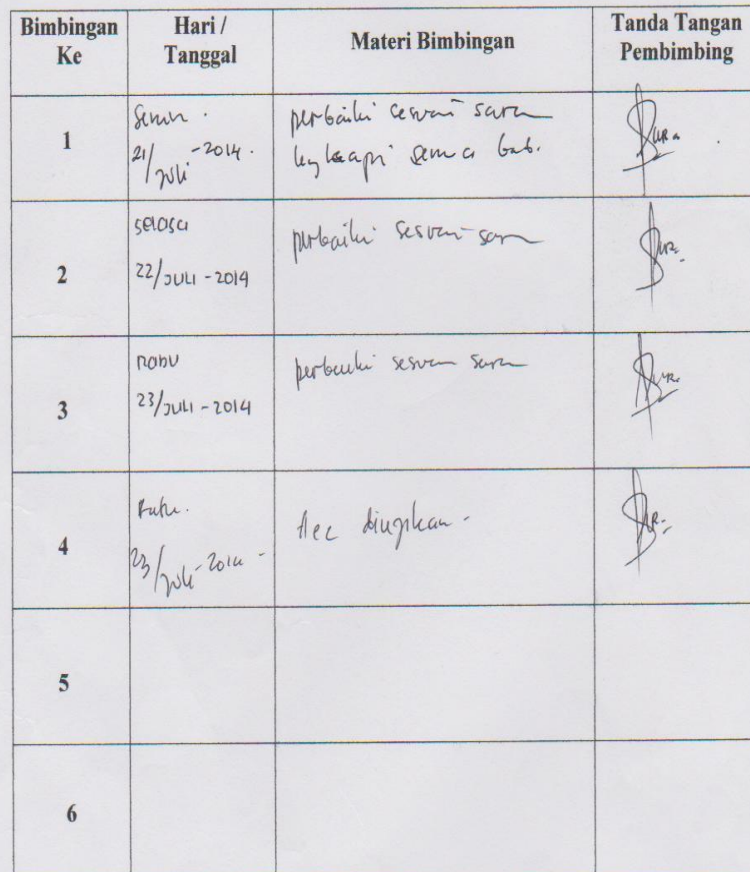 Bimbingan Ke
Hari / Tanggal
Materi Bimbingan
Tanda Tangan Pembimbing
1
Senin.
21/Juli-2014.
perbaiki sesuai saran
lengkapi semua bab.
2
selasa
22/JULI-2014
perbaiki sesuai saran
3
rabu
23/JULI-2014
perbaiki sesuai saran
4
Rabu.
23/Juli-2014-
Acc diujikan-
5
6